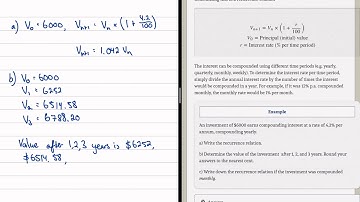 a) V₀ = 6000, Vₙ₊₁ = Vₙ × (1 + 4.2/100)
Vₙ₊₁ = 1.042 Vₙ
b) V₀ = 6000
V₁ = 6252
V₂ = 6514.58
V₃ = 6788.20
Value after 1,2,3 years is $6252,
$6514.58,
Vₙ₊₁ = Vₙ × (1 + r/100)
V₀ = Principal (initial) value
r = Interest rate (% per time period)
The interest can be compounded using different time periods (e.g. yearly,
quarterly, monthly, weekly). To determine the interest rate per time period,
simply divide the annual interest rate by the number of times the interest
would be compounded in a year. For example, if it was 12% p.a. compounded
monthly, the monthly rate would be 1% per month.
Example
An investment of $6000 earns compounding interest at a rate of 4.2% per
annum, compounding yearly.
a) Write the recurrence relation.
b) Determine the value of the investment after 1, 2, and 3 years. Round your
answers to the nearest cent.
c) Write down the recurrence relation if the investment was compounded
monthly.